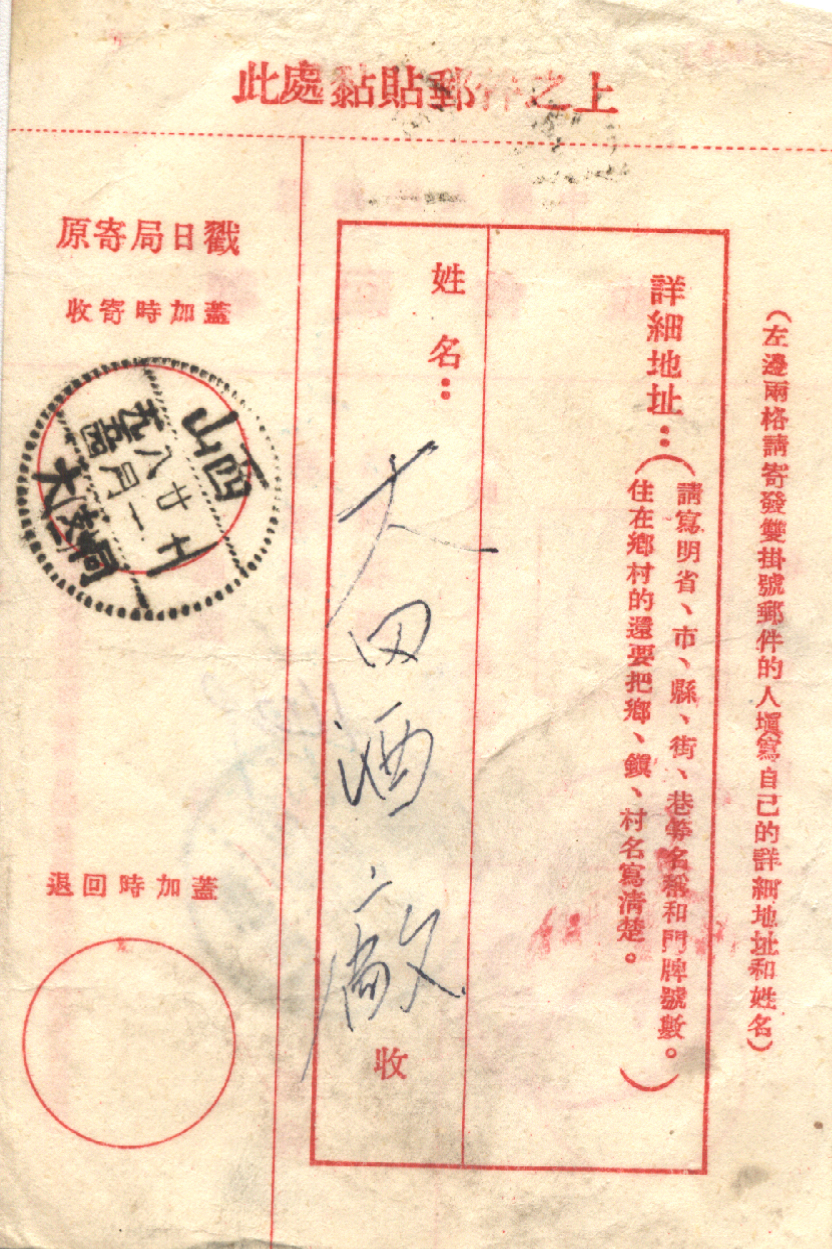 此處黏貼郵件之上
(左邊兩格請寄發雙掛號郵件的人塡寫自己的詳細地址和姓名)
詳細地址：(請寫明省、市、縣、街、巷等名稱和門牌號數。
住在鄉村的還要把鄉、鎭、村名寫清楚。)
姓名：大田酒廠收
原寄局日戳
收寄時加蓋
山西
八月
廿一
退回時加蓋